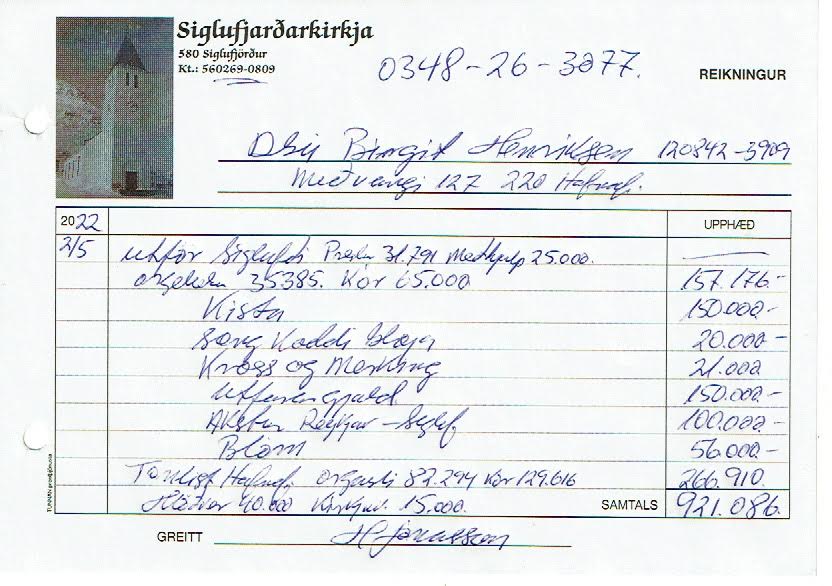 Siglufjarðarkirkja
580 Siglufjörður
Kt.: 560269-0809
0348-26-3077.
REIKNINGUR
Dbú Birgit Henriksen 120842-3909
Miðvangi 127 220 Hafnaf.
2022 UPPHÆÐ
2/5 útför Siglufirði Prestur 31.791 Meðhjálp 25.000.
35385. Kór 65.000 157.176.-
Kista 150.000-
Söng 20.000-
Kross og Merking 21.000
Útfarargjald 150.000-
Akstur Reykjav - Siglf 100.000-
Blóm 56.000-
Tónlist Hafnaf. organisti 82.294 Kór 129.616 266.910.
40.000 15.000. SAMTALS 921.086.
GREITT H Jónasson